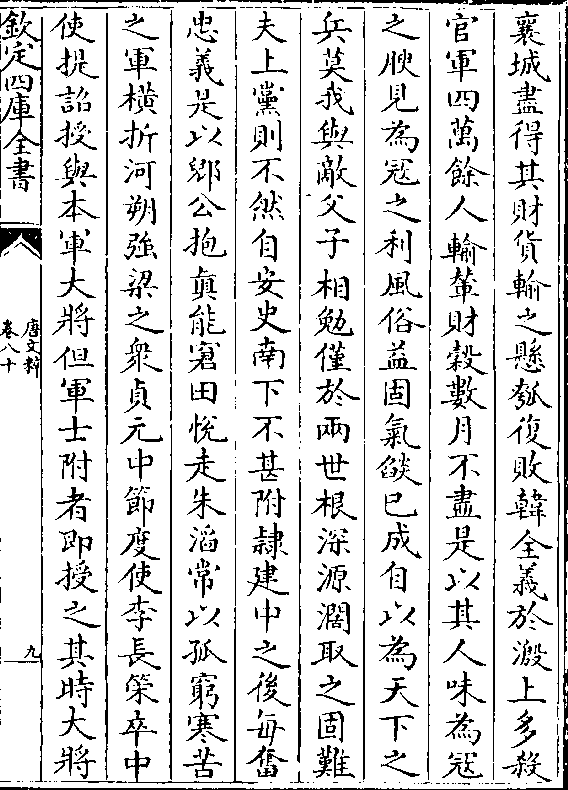 襄城盡得其財貨輸之懸瓠復敗韓全義於溵上多殺
官軍四萬餘人輸輦財穀數月不盡是以其人味為寇
之腴見為冦之利風俗益固氣燄已成自以為天下之
兵莫我與敵父子相勉僅於兩世根深源濶取之固難
夫上黨則不然自安史南下不甚附隷建中之後每奮
忠義是以郳公抱真能窘田悅走朱滔常以孤窮寒苦
之軍橫折河朔強梁之衆貞元中節度使李長榮卒中
使提詔授與本軍大將但軍士附者即授之其時大將
欽定四庫全書
唐文粹
卷八十
九